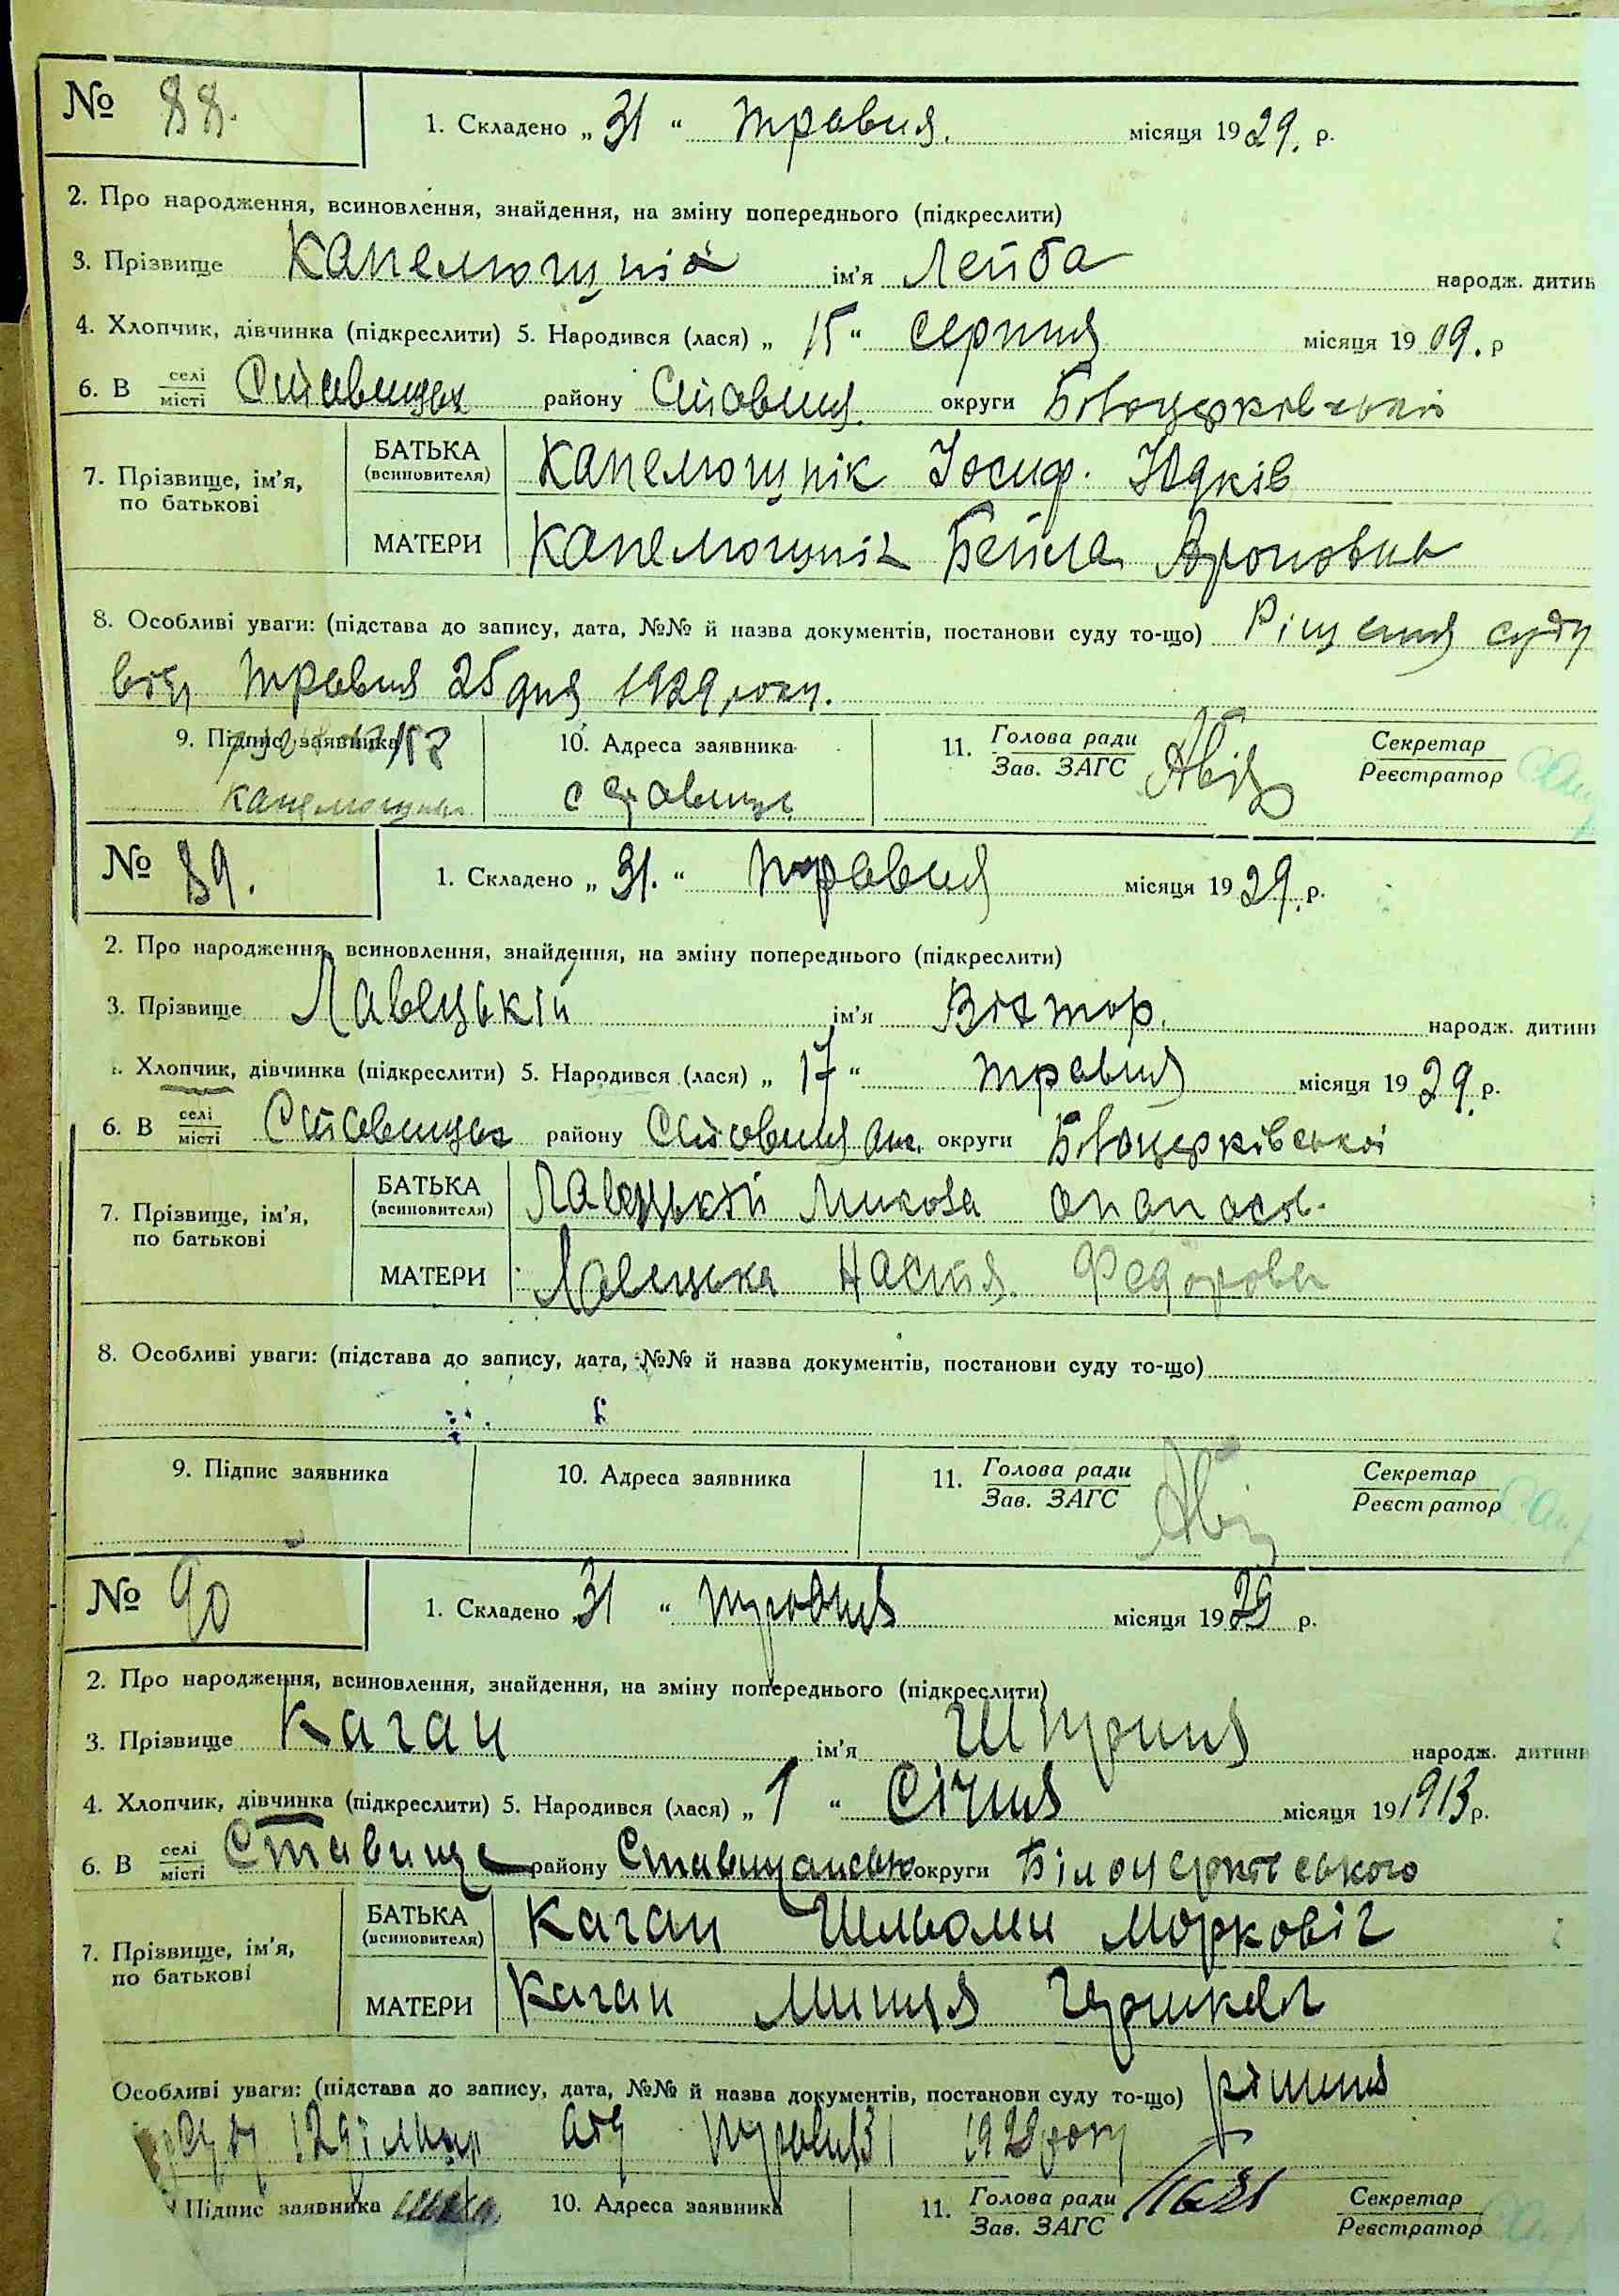 № 88.
1. Складено „ 31 “ травня. місяця 1929. р.
2. Про народження, всиновлення, знайдення, на зміну попереднього (підкреслити)
3. Прізвище Капелюшнік ім'я Лейба народж. дитин
4. Хлопчик, дівчинка (підкреслити) 5. Народився (лася) „ 15 “ серпня місяця 1909. р
6. В селі місті Ставищах району Ставищ. округи Білоцерківської
7. Прізвище, ім'я, по батькові
БАТЬКА (всиновителя) Капелюшнік Іосиф. Юдків
МАТЕРИ Капелюшнік Бейла Ароновна
8. Особливі уваги: (підстава до запису, дата, №№ й назва документів, постанови суду то-що) Рішення суду
від травня 25 дня 1929 року.
9. Підпис заявника 10. Адреса заявника 11. Голова ради Зав. ЗАГС Секретар Реєстратор
с Ставище
№ 89.
1. Складено „ 31. “ травня місяця 1929. р.
2. Про народження, всиновлення, знайдення, на зміну попереднього (підкреслити)
3. Прізвище Лавецькій ім'я Віктор. народж. дитини
Хлопчик, дівчинка (підкреслити) 5. Народився (лася) „ 17 “ травня місяця 1929. р.
6. В селі місті Ставищах району Ставищан. округи Білоцерківської
7. Прізвище, ім'я, по батькові
БАТЬКА (всиновителя) Лавецькій Микола Опанасов.
МАТЕРИ Лавецька Настя Федорова
8. Особливі уваги: (підстава до запису, дата, №№ й назва документів, постанови суду то-що)
9. Підпис заявника 10. Адреса заявника 11. Голова ради Зав. ЗАГС Секретар Реєстратор
№ 90
1. Складено 31 “ травня місяця 1929 р.
2. Про народження, всиновлення, знайдення, на зміну попереднього (підкреслити)
3. Прізвище Каган ім'я народж. дитини
4. Хлопчик, дівчинка (підкреслити) 5. Народився (лася) „ 1 “ Січня місяця 191913 р.
6. В селі місті Ставище району Ставищансько округи Білоцерківського
7. Прізвище, ім'я, по батькові
БАТЬКА (всиновителя) Каган Шльоми Моркович
МАТЕРИ Каган
Особливі уваги: (підстава до запису, дата, №№ й назва документів, постанови суду то-що) рішення
від травня 31 1929 року
Підпис заявника 10. Адреса заявника 11. Голова ради Зав. ЗАГС Секретар Реєстратор